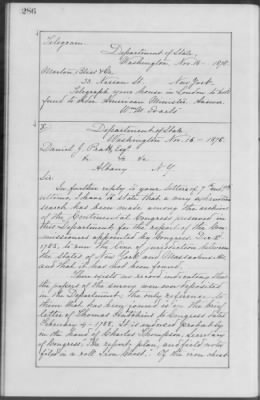 286
Telegram.
Department of State,
Washington, Nov. 16 - 1878.
Morton, Bliss & Co.
Nassau St. New York.
Telegraph your house in London to hold
fund to those American Minister. Answer.
Wm. M. Evarts
Department of State
Washington Nov. 16 - 1878.
Daniel J. Pratt, Esqr
&c &c &c
Albany N.Y.
Sir:
In further reply to your letter of 7th
ultimo, I have to state that a very exhaustive
search has been made among the archives
of the Continental Congress preserved in
this Department, for the report of the Com-
missioners appointed by Congress, Dec. 2
1785, to run the line of jurisdiction between
the States of New York and Massachusetts
and that it has not been found.
There exists no record indicating that
the papers of the survey were ever deposited
in the Department. The only reference to
them that has been found is in the brief
letter of Thomas Hutchins to Congress dated
February 4 - 1788. It is endorsed probably
in the hand of Charles Thompson, Secretary
of Congress: "The report, plan, and field notes
filed in a roll Iron Chest." Of the iron chest